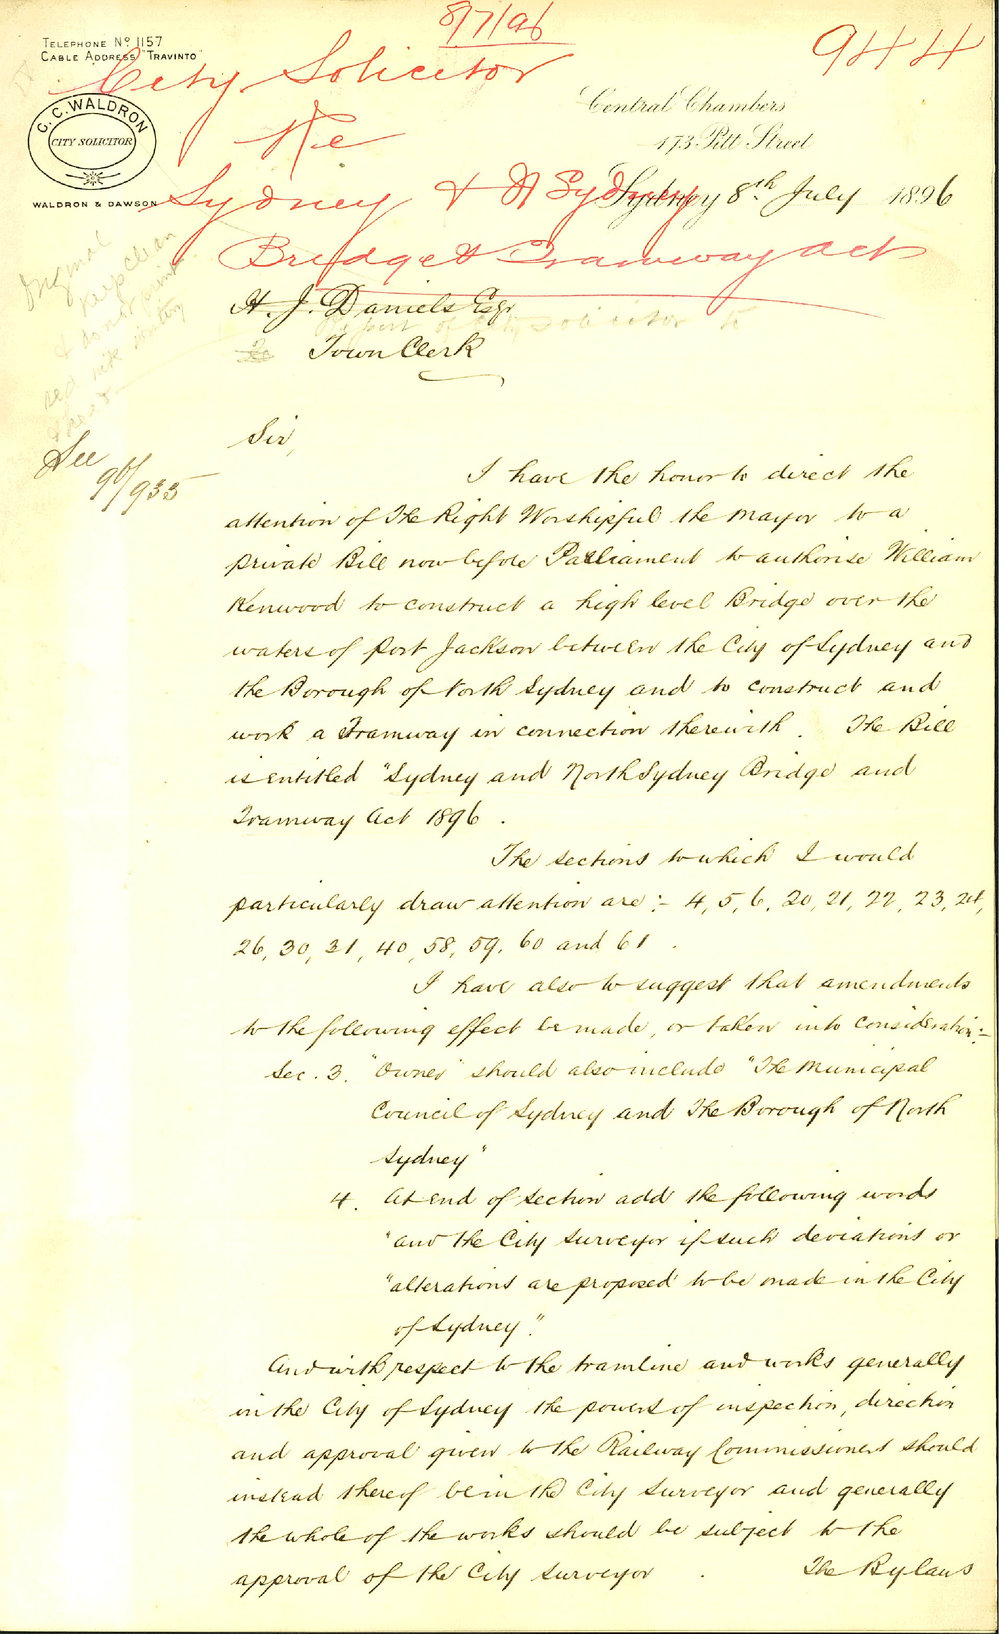 8/7/96
944
TELEPHONE No 1157
CABLE ADDRESS "TRAVINTO"
City Solicitor
C. C. WALDRON
CITY SOLICITOR
WALDRON & DAWSON
Central Chambers
173 Pitt Street
Re
Sydney & N Sydney
Sydney 8th July 1896
Bridge & Tramway Act
Original
keep clean
& do not print
red ink writing
H. J. Daniels Esqr
Report of City Solicitor to
Town Clerk
See
96/935
Sir,
I have the honor to direct the
attention of The Right Worshipful the Mayor to a
private Bill now before Parliament to authorise William
Kenwood to construct a high level Bridge over the
waters of Port Jackson between the City of Sydney and
the Borough of North Sydney and to construct and
work a Tramway in connection therewith. The Bill
is entitled "Sydney and North Sydney Bridge and
Tramway Act 1896.
The sections to which I would
particularly draw attention are :- 4, 5, 6, 20, 21, 22, 23, 24,
26, 30, 31, 40, 58, 59, 60 and 61.
I have also to suggest that amendments
to the following effect be made, or taken into consideration:-
Sec. 3. "Owner" should also include "The Municipal
Council of Sydney and The Borough of North
Sydney"
4. At end of section add the following words
"and the City Surveyor if such deviations or
"alterations are proposed to be made in the City
of Sydney".
And with respect to the tramline and works generally
in the City of Sydney the powers of inspection, direction
and approval given to the Railway Commissioners should
instead thereof be in the City Surveyor and generally
the whole of the works should be subject to the
approval of the City Surveyor. The Bylaws